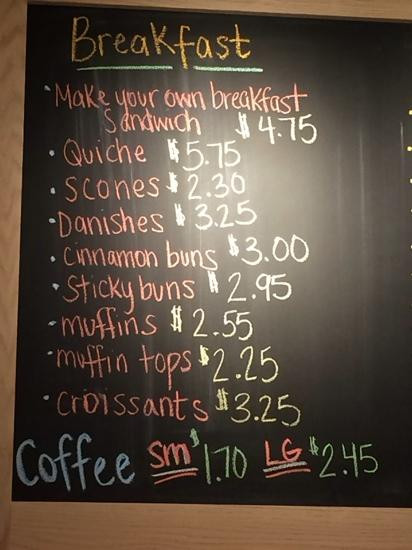 Breakfast
• Make your own breakfast
Sandwich $4.75
• Quiche $5.75
• Scones $2.30
• Danishes $3.25
• cinnamon buns $3.00
• Sticky buns $2.95
• muffins $2.55
• muffin tops $2.25
• croissants $3.25
Coffee Sm $1.70 LG $2.45